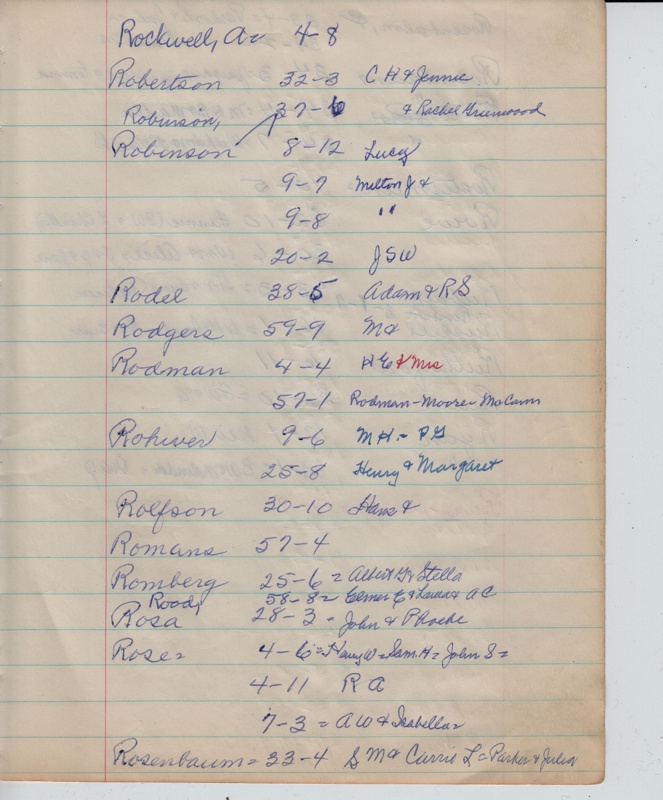 Rockwell, A= 4-8
Robertson 32-3 C. H & Jennie.
Robinson, 37-6 & Rachel Greenwood
Robinson 8-12 Lucy
9-7 Milton J &
9-8 "
20-2 JSW
Rodel 38-5 Adam & R S
Rodgers 59-9 M &
Rodman 4-4 H E & Mrs
57-1 Rodman-Moore= McCann
Rohwer 9-6 M H = P G
25-8 Henry & Margaret
Rolfson 30-10 Hans &
Romans 57-4
Romberg 25-6 = Albert G & Stella
Rood, 58-8= Elmer E & A C
Rosa 28-3 = John & Phoebe
Rose= 4-6= Harry W= Sam. H= John S=
4-11 R A
7-3 = A W & Isabella=
Rosenbaum= 33-4 S M & Carrie L= Parker & Julia